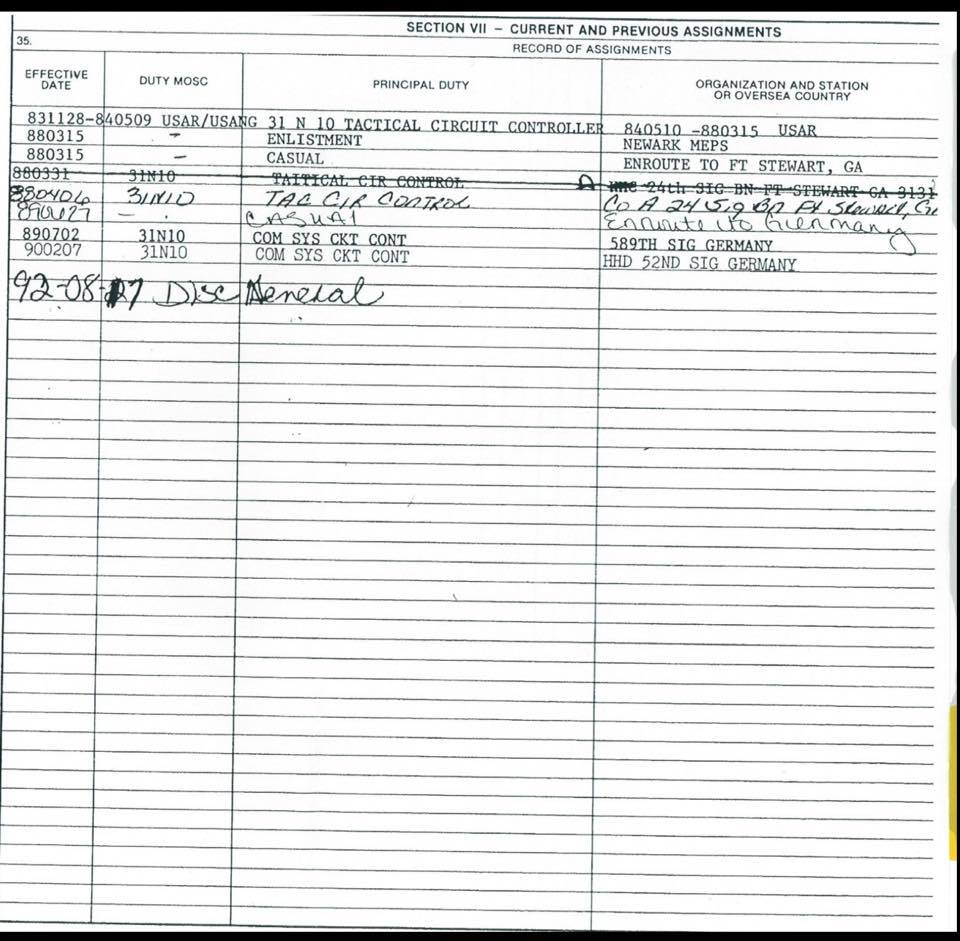 SECTION VII - CURRENT AND PREVIOUS ASSIGNMENTS
35.
RECORD OF ASSIGNMENTS
EFFECTIVE DATE
DUTY MOSC
PRINCIPAL DUTY
ORGANIZATION AND STATION OR OVERSEA COUNTRY
831128-840509 USAR/USANG 31 N 10 TACTICAL CIRCUIT CONTROLLER 840510 -880315 USAR
880315 - ENLISTMENT NEWARK MEPS
880315 - CASUAL ENROUTE TO FT STEWART, GA
880331 31N10 TAITICAL CIR CONTROL A HHC 24th SIG BN FT STEWART GA 3131
880406 31N10 TAC CIR CONTROL Co A 24 Sig Bn Ft Stewart, Ga
- CASUAL Enroute to Germany
890702 31N10 COM SYS CKT CONT 589TH SIG GERMANY
900207 31N10 COM SYS CKT CONT HHD 52ND SIG GERMANY
92-08-27 Disc General